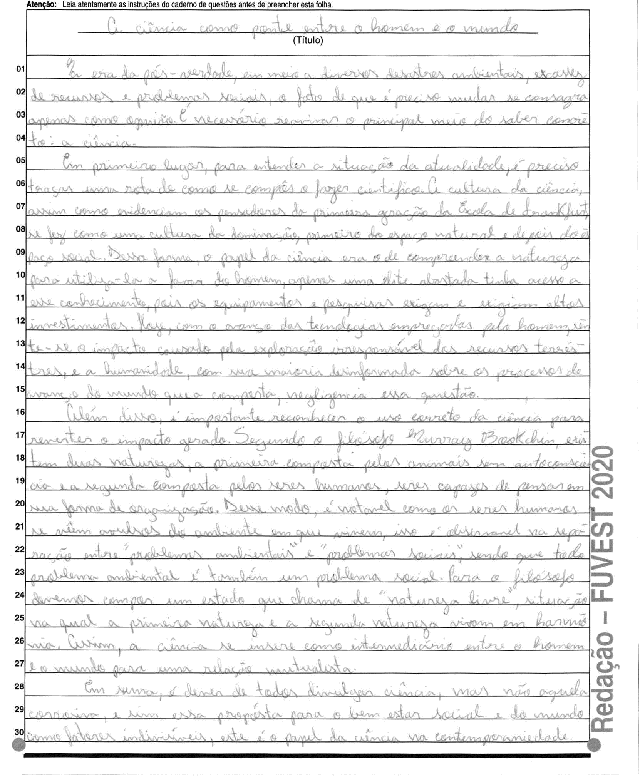 Atenção: Leia atentamente as instruções do caderno de questões antes de preencher esta folha.
A ciência como ponte entre o homem e o mundo
(Título)
01 Na era da pós-verdade, em meio a diversos desastres ambientais, escassez
02 de recursos e problemas sociais, o fato de que é preciso mudar se consagra
03 apenas como opinião. É necessário reanimar o principal meio do saber concre-
04 to: a ciência.
05 Em primeiro lugar, para entender a situação da atualidade, é preciso
06 traçar uma rota de como se compôs o fazer científico. A cultura da ciência,
07 assim como evidenciam os pensadores da primeira geração da Escola de Frankfurt,
08 se fez como uma cultura da dominação, primeiro do espaço natural e depois do es-
09 paço social. Dessa forma, o papel da ciência era o de compreender a natureza
10 para utilizá-la a favor do homem, apenas uma elite abastada tinha acesso a
11 esse conhecimento, pois os equipamentos e pesquisas exigem e exigiam altos
12 investimentos. Hoje, com o avanço das tecnologias empregadas pelo homem, sen-
13 te-se o impacto causado pela exploração irresponsável dos recursos terres-
14 tres, e a humanidade, com sua maioria desinformada sobre os processos de
15 avanço do mundo que a comporta, negligencia essa questão.
16 Além disso, é importante reconhecer o uso correto da ciência para
17 reverter o impacto gerado. Segundo o filósofo Murray Bookchin, exis-
18 tem duas naturezas, a primeira composta pelos animais sem autoconsciên-
19 cia e a segunda composta pelos seres humanos, seres capazes de pensar em
20 sua forma de organização. Desse modo, é notável como os seres humanos
21 se vêem avulsos do ambiente em que vivem, isso é observável na sepa-
22 ração entre "problemas ambientais" e "problemas sociais" sendo que todo
23 problema ambiental é também um problema social. Para o filósofo
24 devemos compor um estado que chama de "natureza livre", situação
25 na qual a primeira natureza e a segunda natureza vivem em harmo-
26 nia. Assim, a ciência se insere como intermediário entre o homem
27 e o mundo para uma relação mutualista.
28 Em suma, é dever de todos divulgar ciência, mas não aquela
29 corrosiva, e sim essa proposta para o bem estar social e do mundo
30 como fatores indivisíveis, este é o papel da ciência na contemporaniedade
Redação – FUVEST 2020